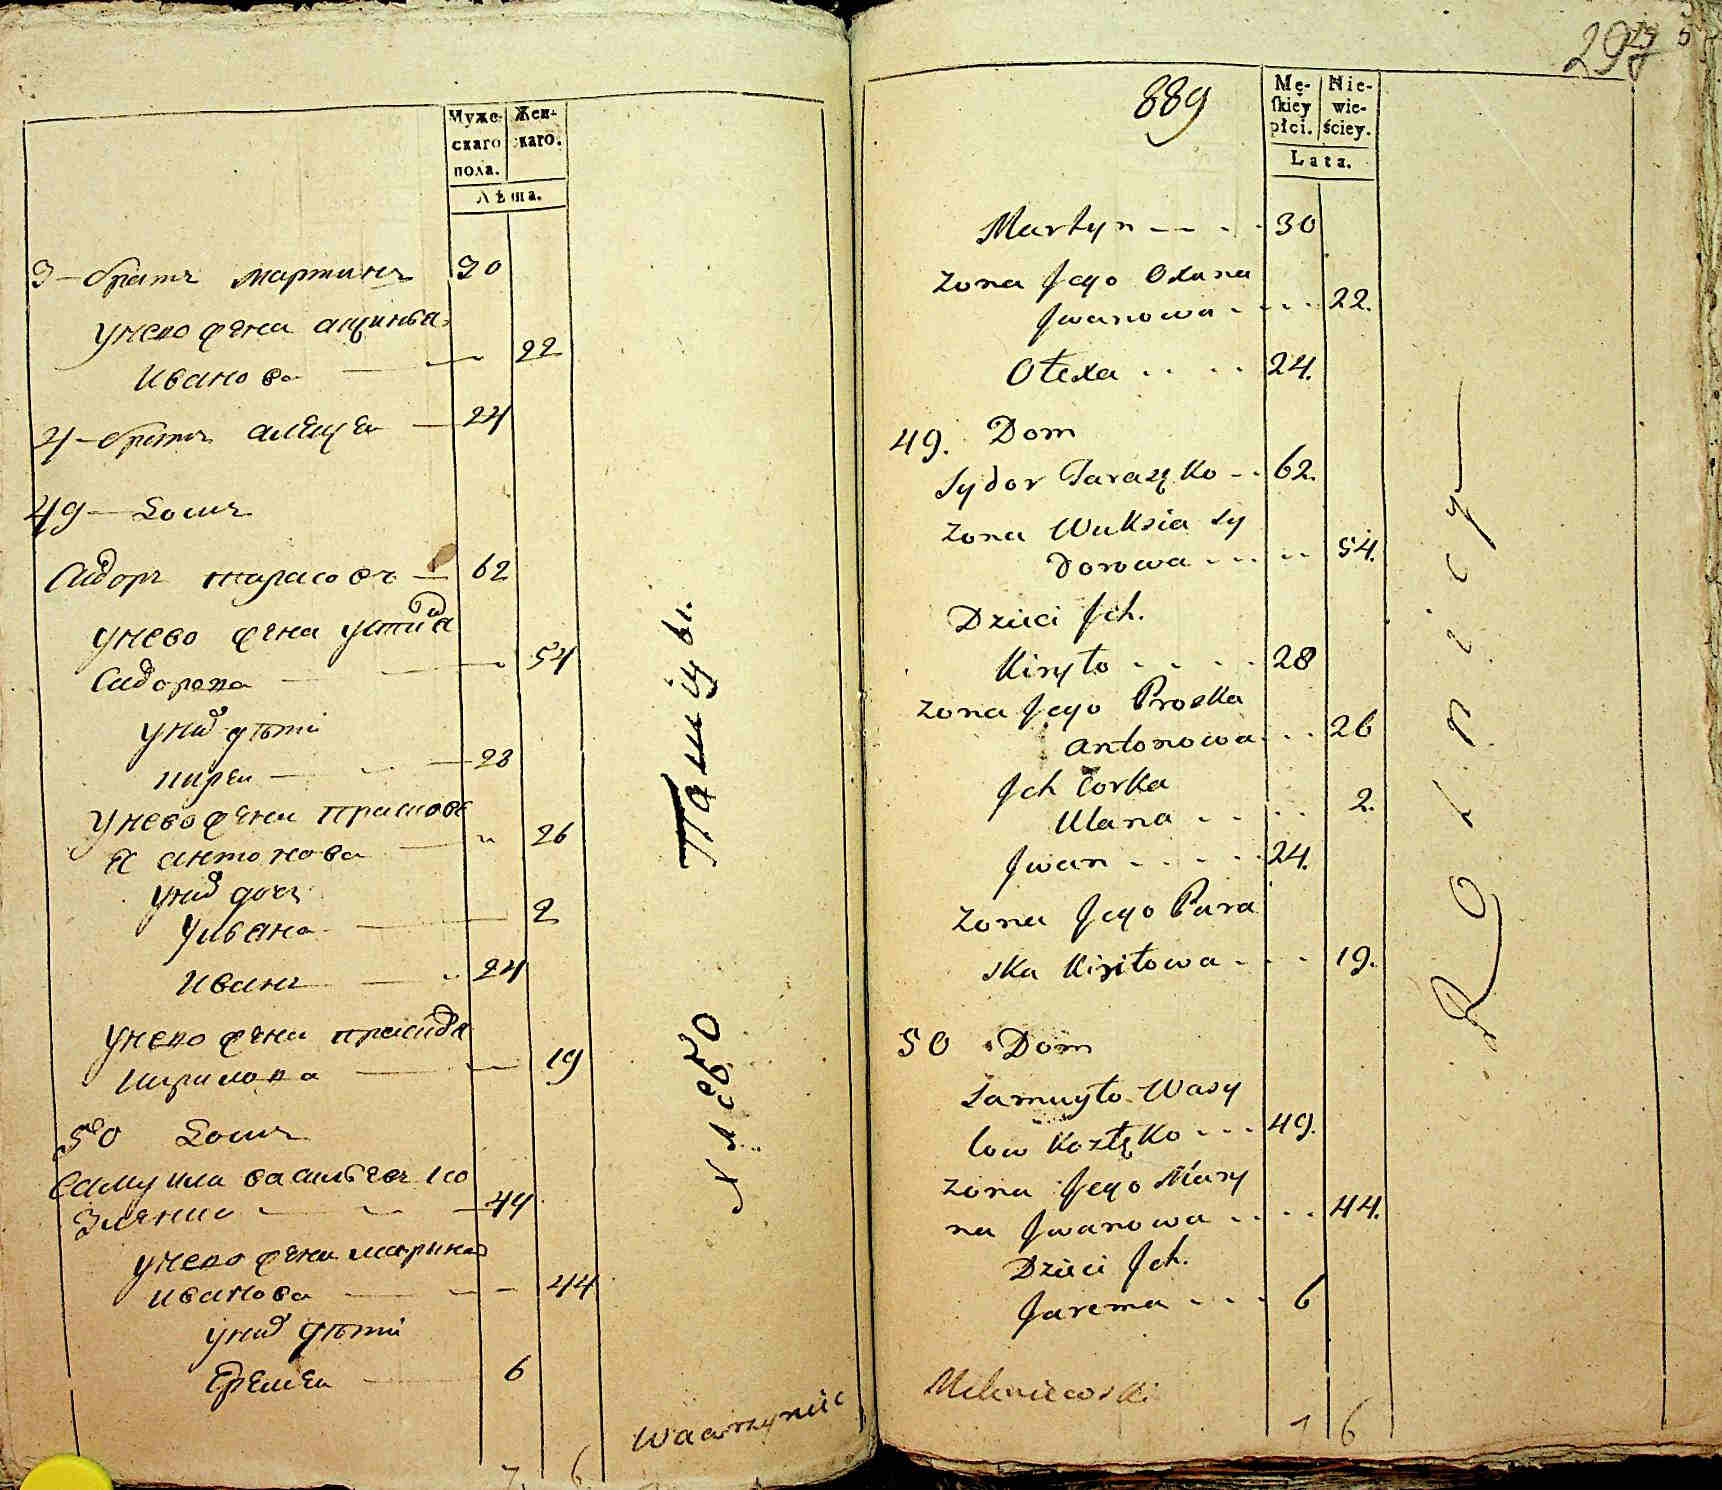 Муже-
скаго
пола.
Жен-
скаго.
Лѣта.
3 — братъ мартинъ 30
унево жена
Иванова — 22
4 — братъ алеѯеи — 24
49 — Домъ
Сидоръ тарасовъ — 62
унево жена
Сидорова — 54
уних дѣти
кирей — 28
унево жена прасков
я антонова — 26
уних дочь
ульяна — 2
Иванъ — 24
унево жена
кирилова — 19
50 Домъ
Самуила васильевъ ко
зленко — 49
унево жена марина
иванова — 44
уних дѣти
Еремеи — 6
7 6
хлебо Пашцы.
Wawrzyniec
29
889
Mę-
skiey
płci.
Nie-
wie-
ściey.
Lata.
Martyn - - - - 30
Zona Jego Oxana
Jwanowa - - - - 22.
Olexa - - - - 24.
49. Dom
Sydor Taraszko - - 62.
Zona Wuksia Sy
dorowa - - - - 54.
Dzieci Jch.
Kiryło - - - - 28
Zona Jego Proska
Antonowa - - - 26
Jch Corka
Ulana - - - - 2.
Jwan - - - - 24.
Zona Jego Para
ska Kiriłowa - - - 19.
50 Dom
Samuyło Wasy
low Kozłęko - - - 49.
Zona Jego Mary
na Jwanowa - - - - 44.
Dzieci Jch.
Jarema - - - 6
Rolnicy
7 6